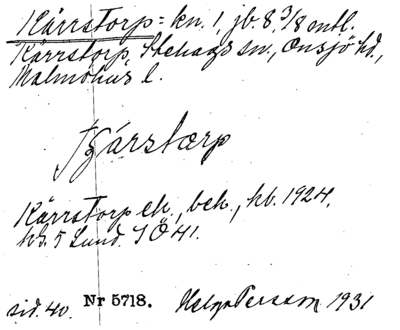 Kärrstorp = kn. 1, jb. 8 3/8 mtl.
Kärrstorp, Stehags sn., Onsjö hd.,
Malmöhus l.
Kärrstorp ek., beb., hb. 1924.
hs. 5 Lund. IÖ 41.
sid. 40. Nr 5718. Helge Persson 1931